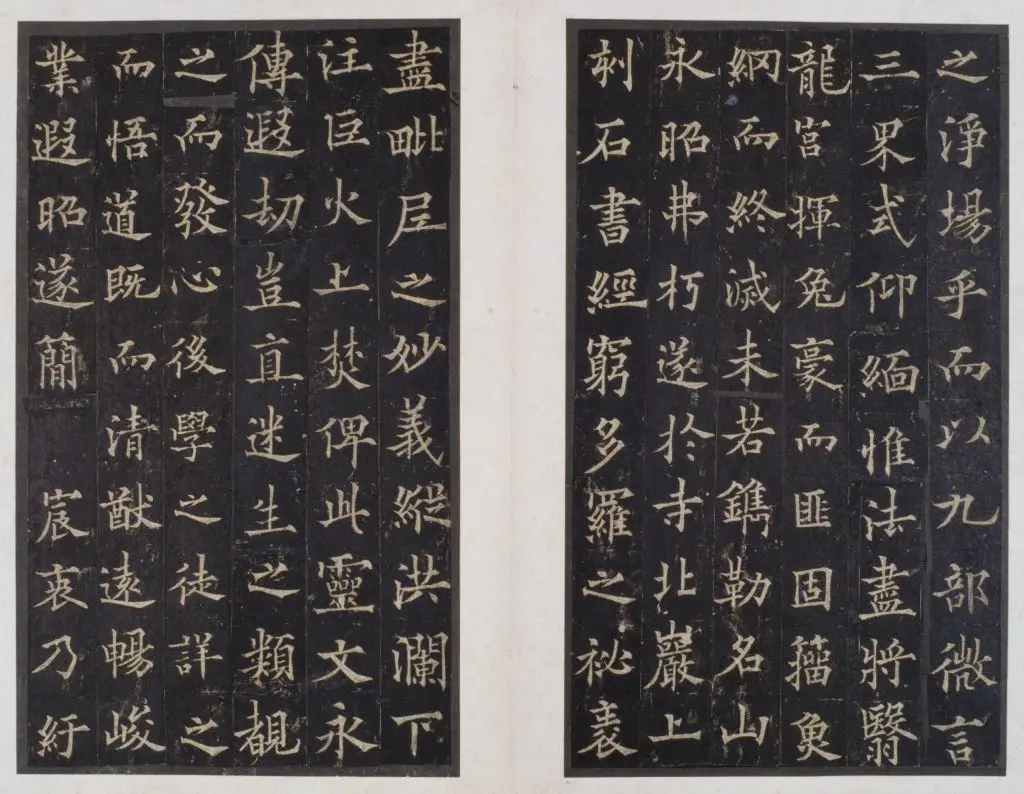 之淨場乎而以九部微言
三界式仰緬惟法盡將翳
龍宮揮兔豪而匪固籀魚
網而終滅未若鐫勒名山
永昭弗朽遂於寺北巖上
刻石書經窮多羅之祕袠
盡毗尼之妙義縱洪瀾下
注巨火上焚俾此靈文永
傳遐劫豈直迷生之類覩
之而發心後學之徒詳之
而悟道既而清猷遠暢峻
業遐昭遂簡 宸衷乃紆